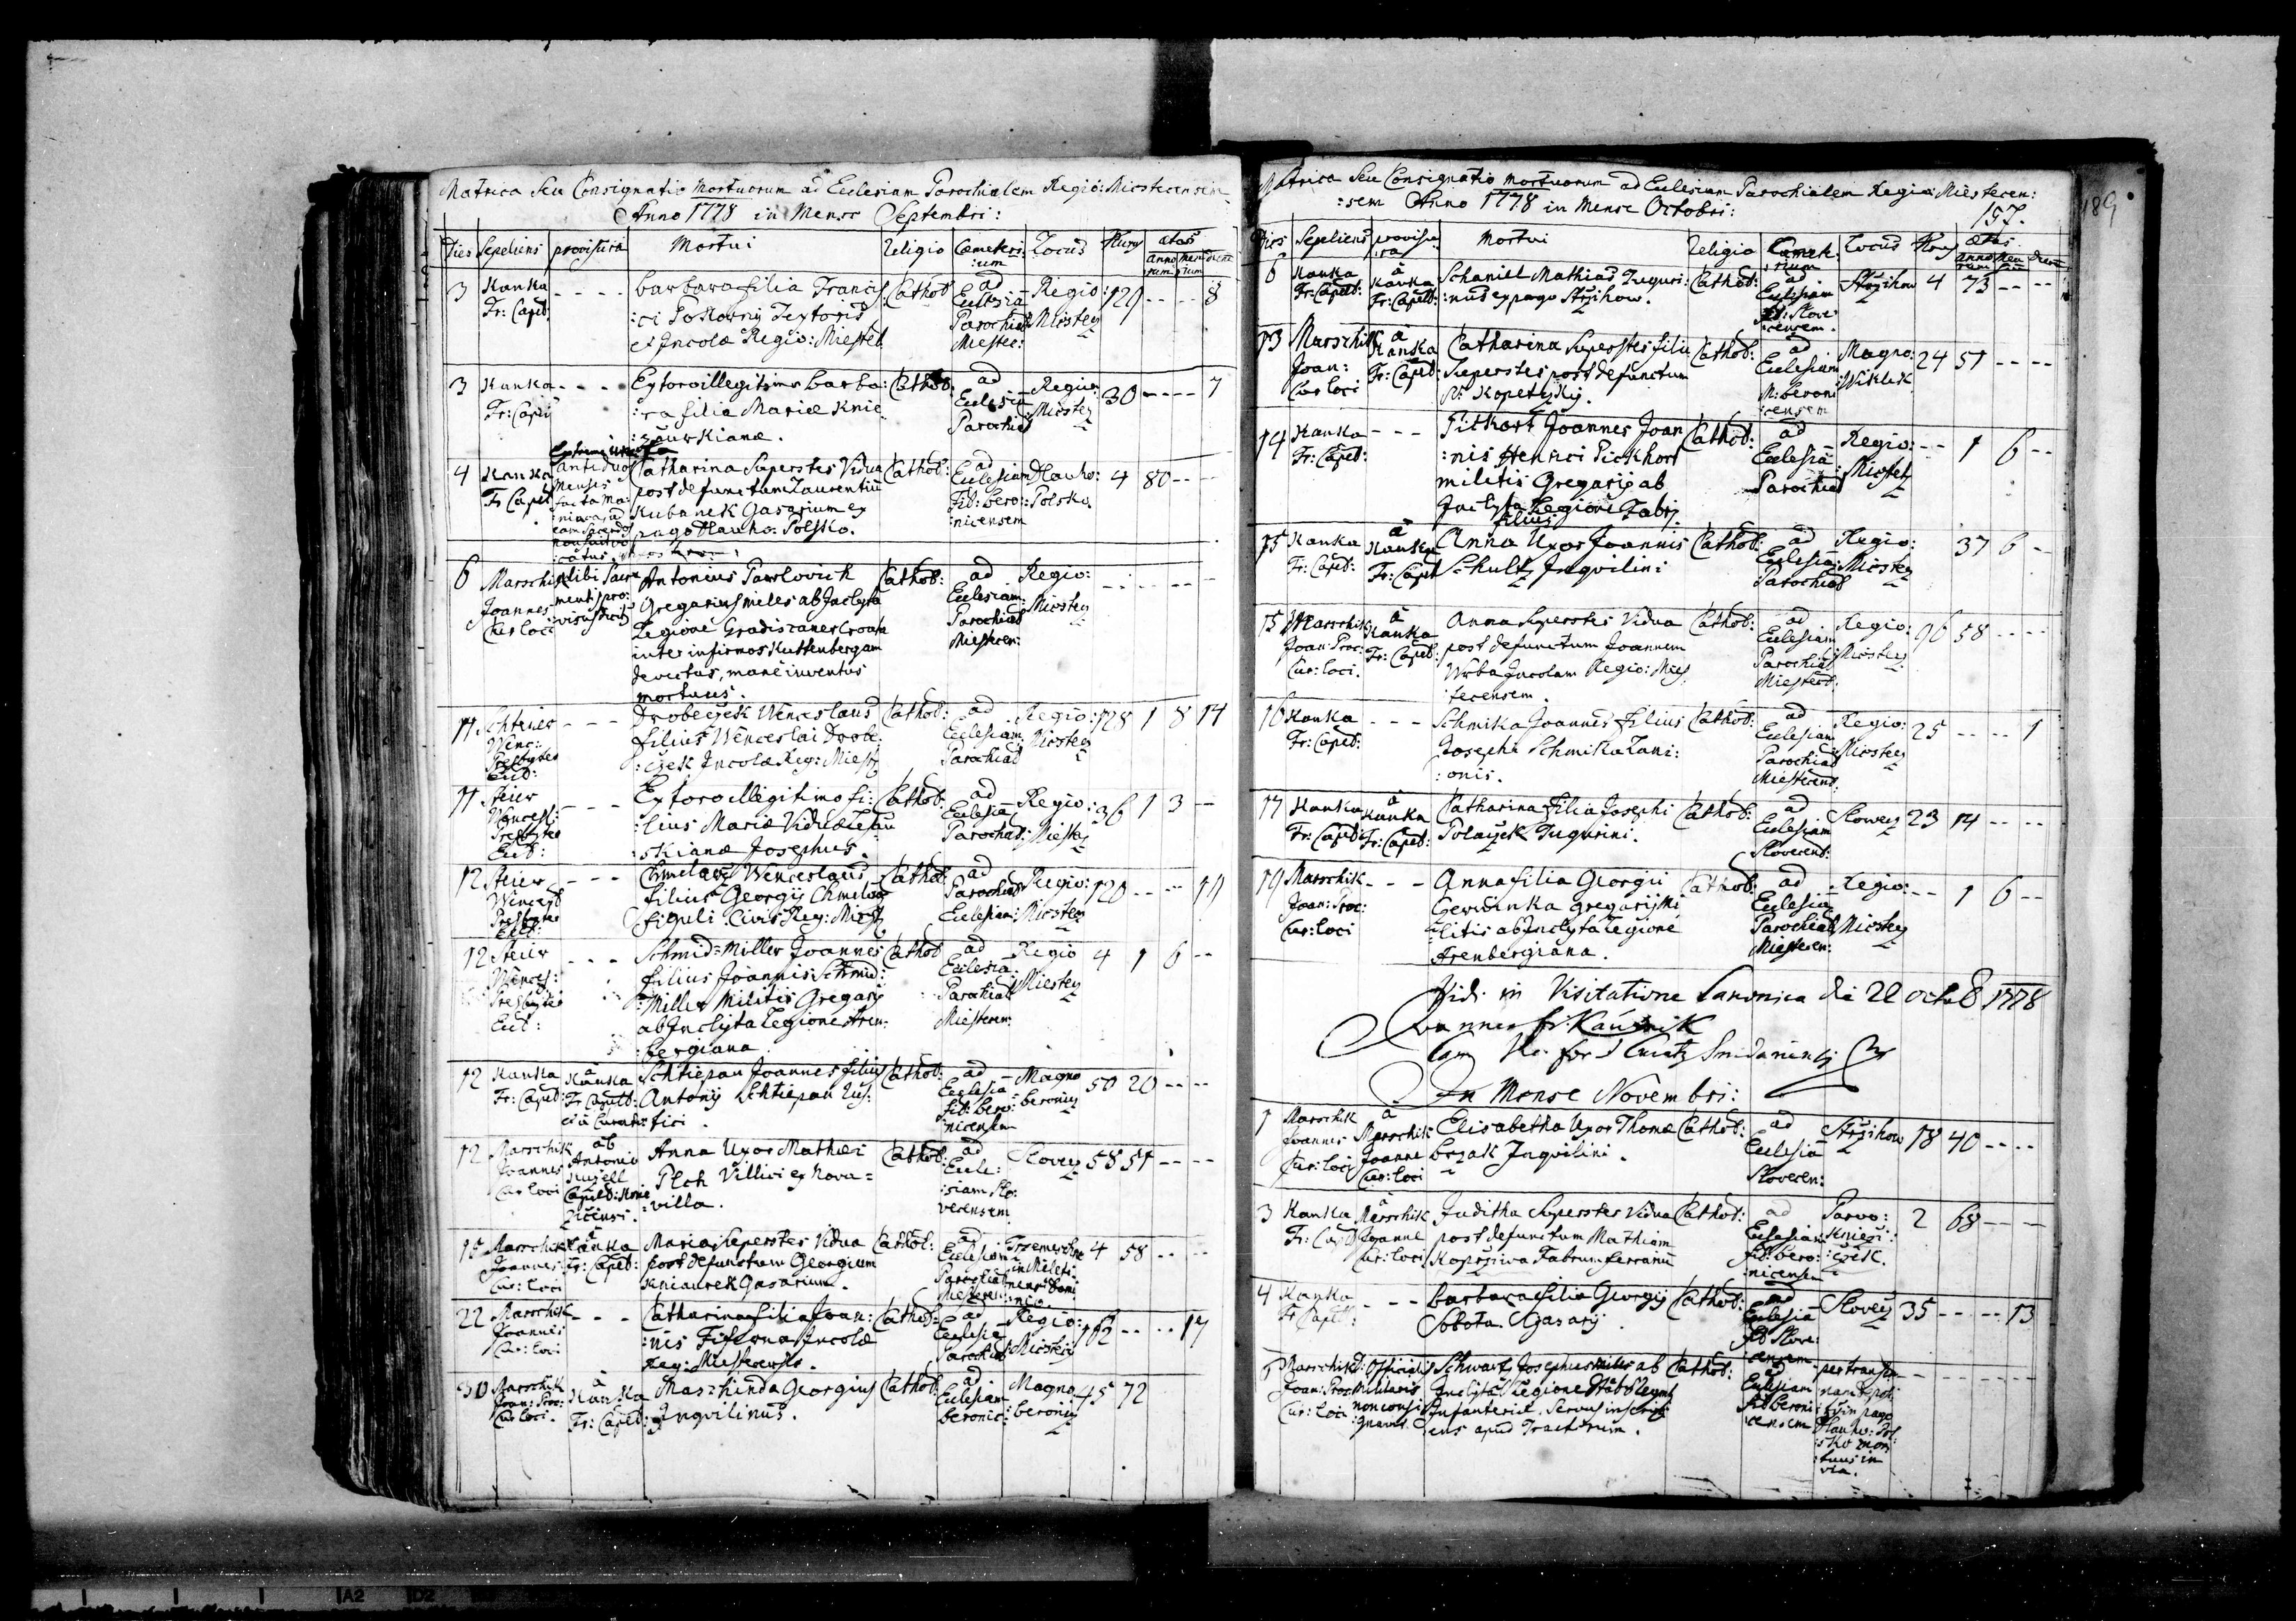 Matrica Seu Consignatio mortuorum ad Ecclesiam Parochialem Regio: Miestecensem
Anno 1778 in Mense Septembri:
Dies Sepeliens provisura Mortui Religio Cæmeteri:um Locus ætas
3 Kanka Fr: Capel: - - - -
barbara filia Francis:
:ci Pokorny Textoris
et Incolæ Regio: Miestec
Cathol:
ad Ecclesia Parochial Miestec:
Regio: Miestez
129 - - - - 8
3 Kanka Fr: Capel - - - -
Ex toro illegitimo barba:
:ra filia Mariæ Knie
:zaurkianæ.
Cathol:
ad Ecclesia Parochial
Regio: Miestez
30 - - - - 7
4 Kanka Fr Capel
Catharina Superstes Vidua
post defunctum Laurentiu
Kubanek Gasarium ex
pago Hlauho: Polsko.
Cathol:
ad Ecclesiam Fil: bero: :nicensem
Hlauho: Polsko.
4 80 - - -
6 Marschik Joannes Cur loci
Antonius Pawlovich
Gregarius miles ab Inclyta
Legione Gradiscaner Croata
inter infirmos Kuttenbergam
devectus, mane inventus
mortuus.
Cathol:
ad Ecclesiam Parochial Miestecen:
Regio: Miestez
11 Schteier Wenc: Presbyter - - -
Drobeczek Wenceslaus
filius Wenceslai Drobe
:czek Incolæ Reg: Miest
Cathol:
ad Ecclesiam Parochial
Regio: Miestez
128 1 8 14
11 Steier Wencesl: Presbyter - - -
Ex toro illegitimo fi:
:lius Mariæ Viduæ
:skianæ Josephus.
Cathol:
ad Ecclesia Parochial:
Regio: Miestez
36 1 3 --
12 Steier Wencesl Presbyter - - -
Chmelarz Wenceslaus
filius Georgij Chmelarz
figuli Civis Reg: Miest
Cathol:
ad Parochial Ecclesiam:
Regio: Miestez
120 - - - 11
12 Steier Wences: Presbyter - - -
Schmid=Miller Joannes
filius Joannis Schmid:
Miller Militis Gregarij
ab Inclyta Legione Aren:
:bergiana
Cathol
ad Ecclesia: Parochial Miestecen:
Regio Miestez
4 1 6 --
12 Kanka Fr: Capel:
à Kanka Fr Capell:
Schtiepan Joannes filius
Antonij Schtiepan Rus:
:tici.
Cathol:
ad Ecclesia fil: bero: :nicensem
Magno beronitz
50 20 -- --
12 Marschik Joannes Cur loci
ab Antonio
Anna Uxor Mathæi
Plch Villici ex Nova=
:villa.
Cathol:
ad Eccle: :siam Slo: verensem
Slovez
58 51 -- --
15 Marschik Joannes Cur: loci
à Kanka Fr: Capel:
Maria Superstes Vidua
post defunctum Georgium
Kniaurek Gasarium.
Cathol:
ad Ecclesiam Parochial Miestecen:
4 58 -- --
22 Marschik Joannes Cur: loci - - -
Catharina filia Joan:
:nis Fiferna Incolæ
Reg: Miestecensis.
Cathol:
ad Ecclesia Parochial
Regio: Miestez
162 -- -- 17
30 Marschik Joan: Proc: Cur loci.
à Kanka Fr: Capel:
Maschinda Georgius
Inquilinus.
Cathol:
ad Ecclesiam beronic:
Magno beronitz
45 72
Matrica Seu Consignatio mortuorum ad Ecclesiam Parochialem Regio: Miestecen:
:sem Anno 1778 in Mense Octobri:
189
157.
Dies Sepeliens provisura Mortui Religio Cæmeterium Locus ætas
6 Kanka Fr: Capell:
à Kanka Fr: Capell:
Schaniel Mathias Tuguri:
:nus ex pago Strzihow.
Cathol:
ad Ecclesiam fil: Slove :censem.
Strzihow
4 73 -- --
13 Marschik Joan: Cur loci
à Kanka Fr: Capel:
Catharina Superstes filia
Superstes post defunctum
Kopetzky.
Cathol:
ad Ecclesiam M: beroni :censem
Magno: Wiklek
24 51 -- --
14 Kanka Fr: Capel: - - -
Pitkart Joannes Joan
:nis Henrici Pickhart
militis Gregarij ab
Inclyta Legione Fabri
filius
Cathol:
ad Ecclesia Parochial
Regio: Miestetz
-- 1 6 --
15 Kanka Fr: Capel:
à Kanka Fr: Capel
Anna Uxor Joannis
Schultz Inquilini
Cathol:
ad Ecclesia Parochial
Regio: Miestez
37 6 --
15 Marschik Joan: Proc: Cur: loci.
à Kanka Fr: Capel:
Anna Superstes Vidua
post defunctum Joannem
Wrba Incolam Regio: Mies
tecensem.
Cathol:
ad Ecclesiam Parochial Miestecen:
Regio: Miestez
96 58 -- --
16 Kanka Fr: Capel: - - -
Schmika Joannes Filius
Josephi Schmika Lani:
:onis.
Cathol:
ad Ecclesiam Parochial Miestecen:
Regio: Miestez
25 -- -- 1
17 Kanka Fr: Capel:
à Kanka Fr: Capel:
Catharina Filia Josephi
Polaczek Tugurini.
Cathol:
ad Ecclesiam Slovecens:
Slowez
23 14 -- --
19 Marschik Joan: Proc: Cur: loci - - -
Anna filia Georgii
Gewinka gregarij Mi
:litis ab Inclyta Legione
Arenbergiana.
Cathol:
ad Ecclesia Parochial Miestecen:
Regio: Miestez
-- 1 6 --
Vidi in Visitatione Canonica die 22 octob 1778
In Mense Novembri:
1 Marschik Joannes Cur: loci
à Marschik Joanne Cur: loci
Elisabetha Uxor Thomæ
brzak Inquilini.
Cathol:
ad Ecclesia Slovecen:
Strzihow
18 40 -- --
3 Kanka Fr: Capel
à Marschik Joanne Cur: loci
Juditha Superstes Vidua
post defunctum Mathiam
Koprziwa Fabrum ferrariu
Cathol:
ad Ecclesiam fil: bero: :nicensem
Parvo: Kniezi: :czek.
2 68 -- --
4 Kanka Fr Capel: - - -
barbara filia Georgij
Sobota Gasarij
Cathol:
ad Ecclesia fil Slove: :censem
Slovez
35 -- -- 13
Marschik Joan: Proc Cur: loci
Officialis Militaris non consi gnavit.
Schwartz Josephus miles ab
Inclyta Legione Stab Regmt
Infanterie. Servus
ens apud Tractorum.
Cathol:
ad Ecclesiam fil beroni :censem
in pago Hlauho: Pol: :sko mor :tuus in via.